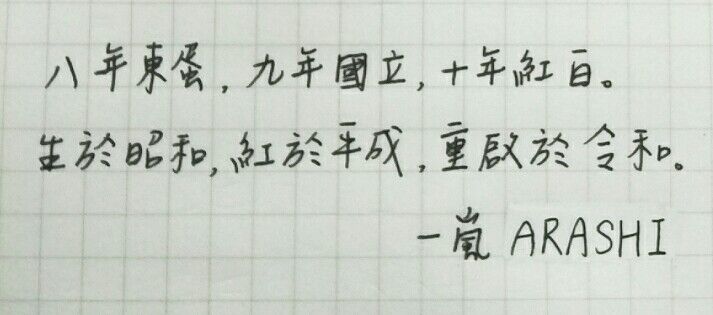 八年東蛋，九年國立，十年紅白。
生於昭和，紅於平成，重啟於令和。
－嵐 ARASHI